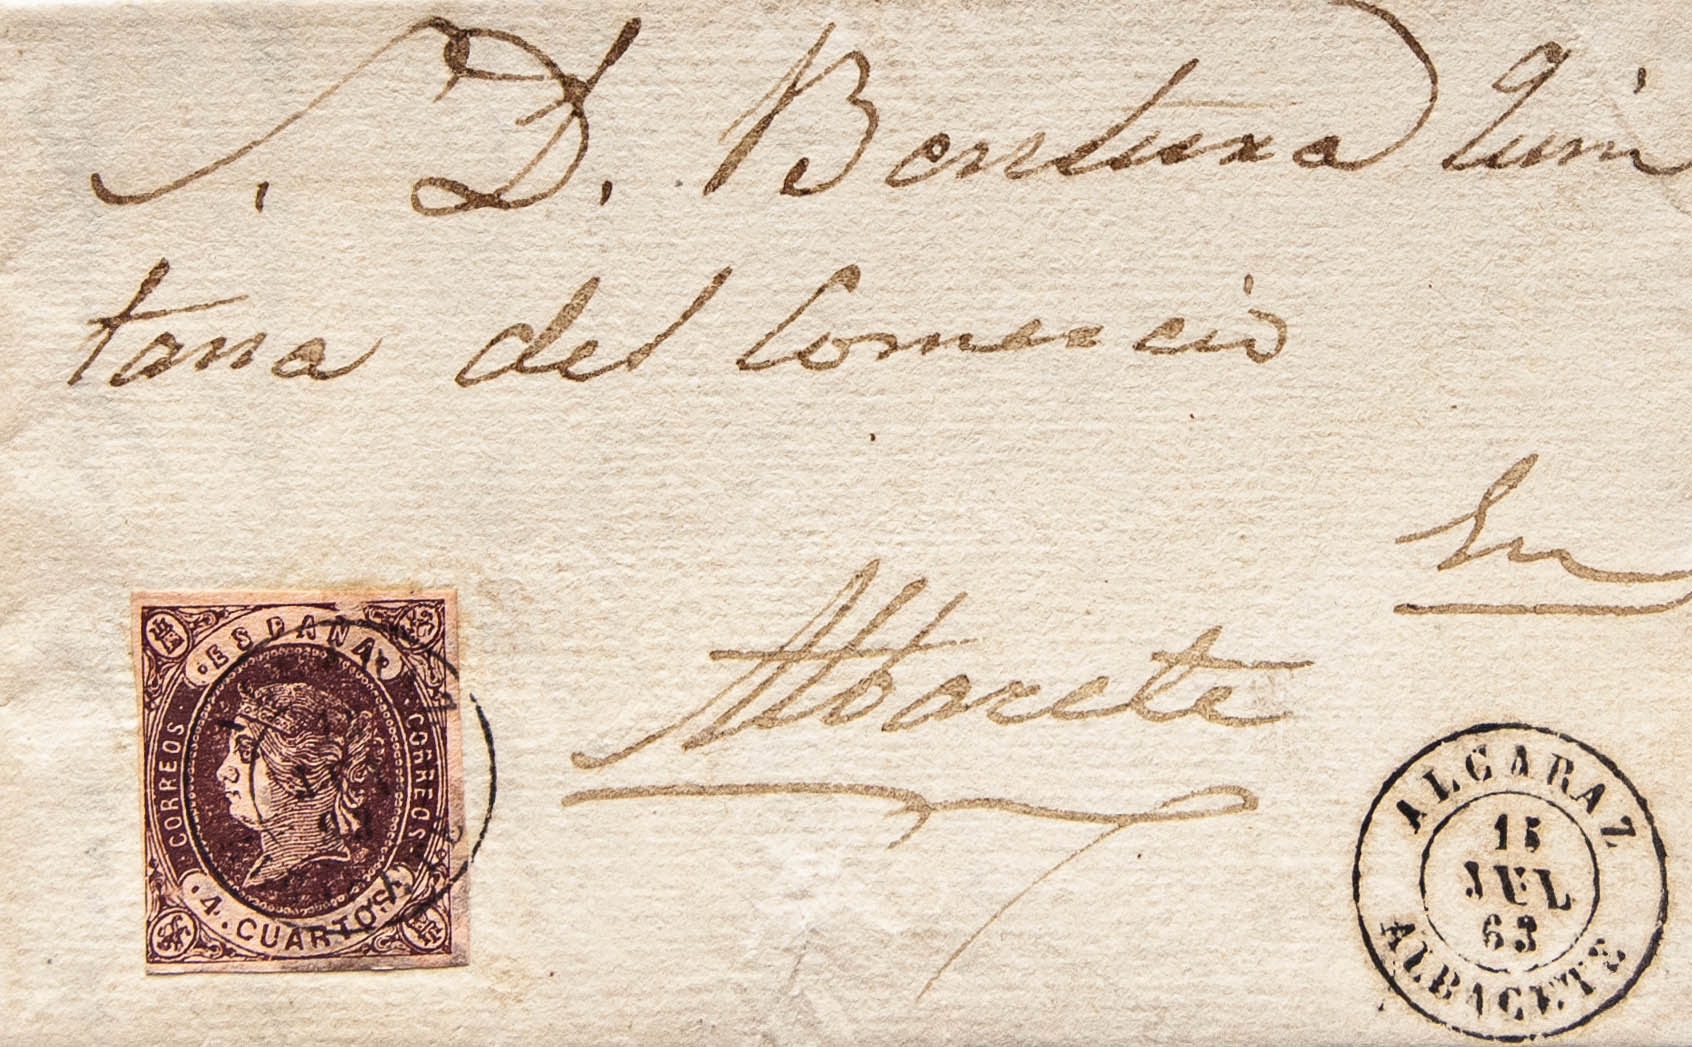 S. D. Bentura Quin
tana del Comercio
En
Albacete
ESPAÑA
CORREOS
CORREOS
4 CUARTOS
ALCARAZ
15
JUL
63
ALBACETE